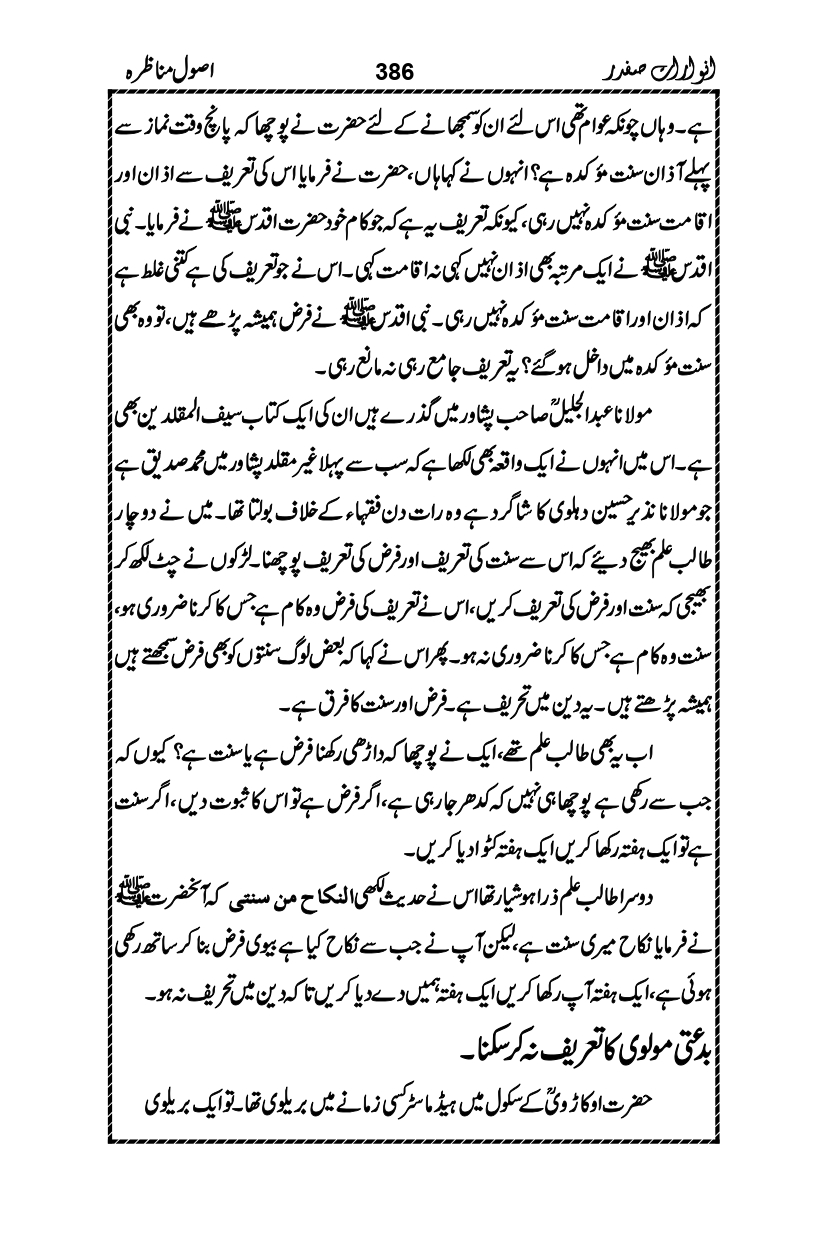 انوارات صفدر 386 اصول مناظرہ
ہے۔ وہاں چونکہ عوام تھی اس لئے ان کو سمجھانے کے لئے حضرت نے پوچھا کہ پانچ وقت نماز سے
پہلے آذان سنت مؤکدہ ہے؟ انہوں نے کہا ہاں، حضرت نے فرمایا اس کی تعریف سے اذان اور
اقامت سنت مؤکدہ نہیں رہی، کیونکہ تعریف یہ ہے کہ جو کام خود حضرت اقدس ﷺ نے فرمایا۔ نبی
اقدس ﷺ نے ایک مرتبہ بھی اذان نہیں کہی نہ اقامت کہی۔ اس نے جو تعریف کی ہے کتنی غلط ہے
کہ اذان اور اقامت سنت مؤکدہ نہیں رہی۔ نبی اقدس ﷺ نے فرض ہمیشہ پڑھے ہیں، تو وہ بھی
سنت مؤکدہ میں داخل ہو گئے؟ یہ تعریف جامع رہی نہ مانع رہی۔
مولانا عبدالجلیلؒ صاحب پشاور میں گذرے ہیں ان کی ایک کتاب سیف المقلدین بھی
ہے۔ اس میں انہوں نے ایک واقعہ بھی لکھا ہے کہ سب سے پہلا غیر مقلد پشاور میں محمد صدیق ہے
جو مولانا نذیر حسین دہلوی کا شاگرد ہے وہ رات دن فقہاء کے خلاف بولتا تھا۔ میں نے دو چار
طالب علم بھیج دیئے کہ اس سے سنت کی تعریف اور فرض کی تعریف پوچھنا۔ لڑکوں نے چٹ لکھ کر
بھیجی کہ سنت اور فرض کی تعریف کریں، اس نے تعریف کی فرض وہ کام ہے جس کا کرنا ضروری ہو،
سنت وہ کام ہے جس کا کرنا ضروری نہ ہو۔ پھر اس نے کہا کہ بعض لوگ سنتوں کو بھی فرض سمجھتے ہیں
ہمیشہ پڑھتے ہیں۔ یہ دین میں تحریف ہے۔ فرض اور سنت کا فرق ہے۔
اب یہ بھی طالب علم تھے، ایک نے پوچھا کہ داڑھی رکھنا فرض ہے یا سنت ہے؟ کیوں کہ
جب سے رکھی ہے پوچھا ہی نہیں کہ کدھر جا رہی ہے، اگر فرض ہے تو اس کا ثبوت دیں، اگر سنت
ہے تو ایک ہفتہ رکھا کریں ایک ہفتہ کٹوا دیا کریں۔
دوسرا طالب علم ذرا ہوشیار تھا اس نے حدیث لکھی النکاح من سنتی کہ آنحضرت ﷺ
نے فرمایا نکاح میری سنت ہے، لیکن آپ نے جب سے نکاح کیا ہے بیوی فرض بنا کر ساتھ رکھی
ہوئی ہے، ایک ہفتہ آپ رکھا کریں ایک ہفتہ ہمیں دے دیا کریں تا کہ دین میں تحریف نہ ہو۔
بدعتی مولوی کا تعریف نہ کر سکنا۔
حضرت اوکاڑویؒ کے سکول میں ہیڈ ماسٹر کسی زمانے میں بریلوی تھا۔ تو ایک بریلوی